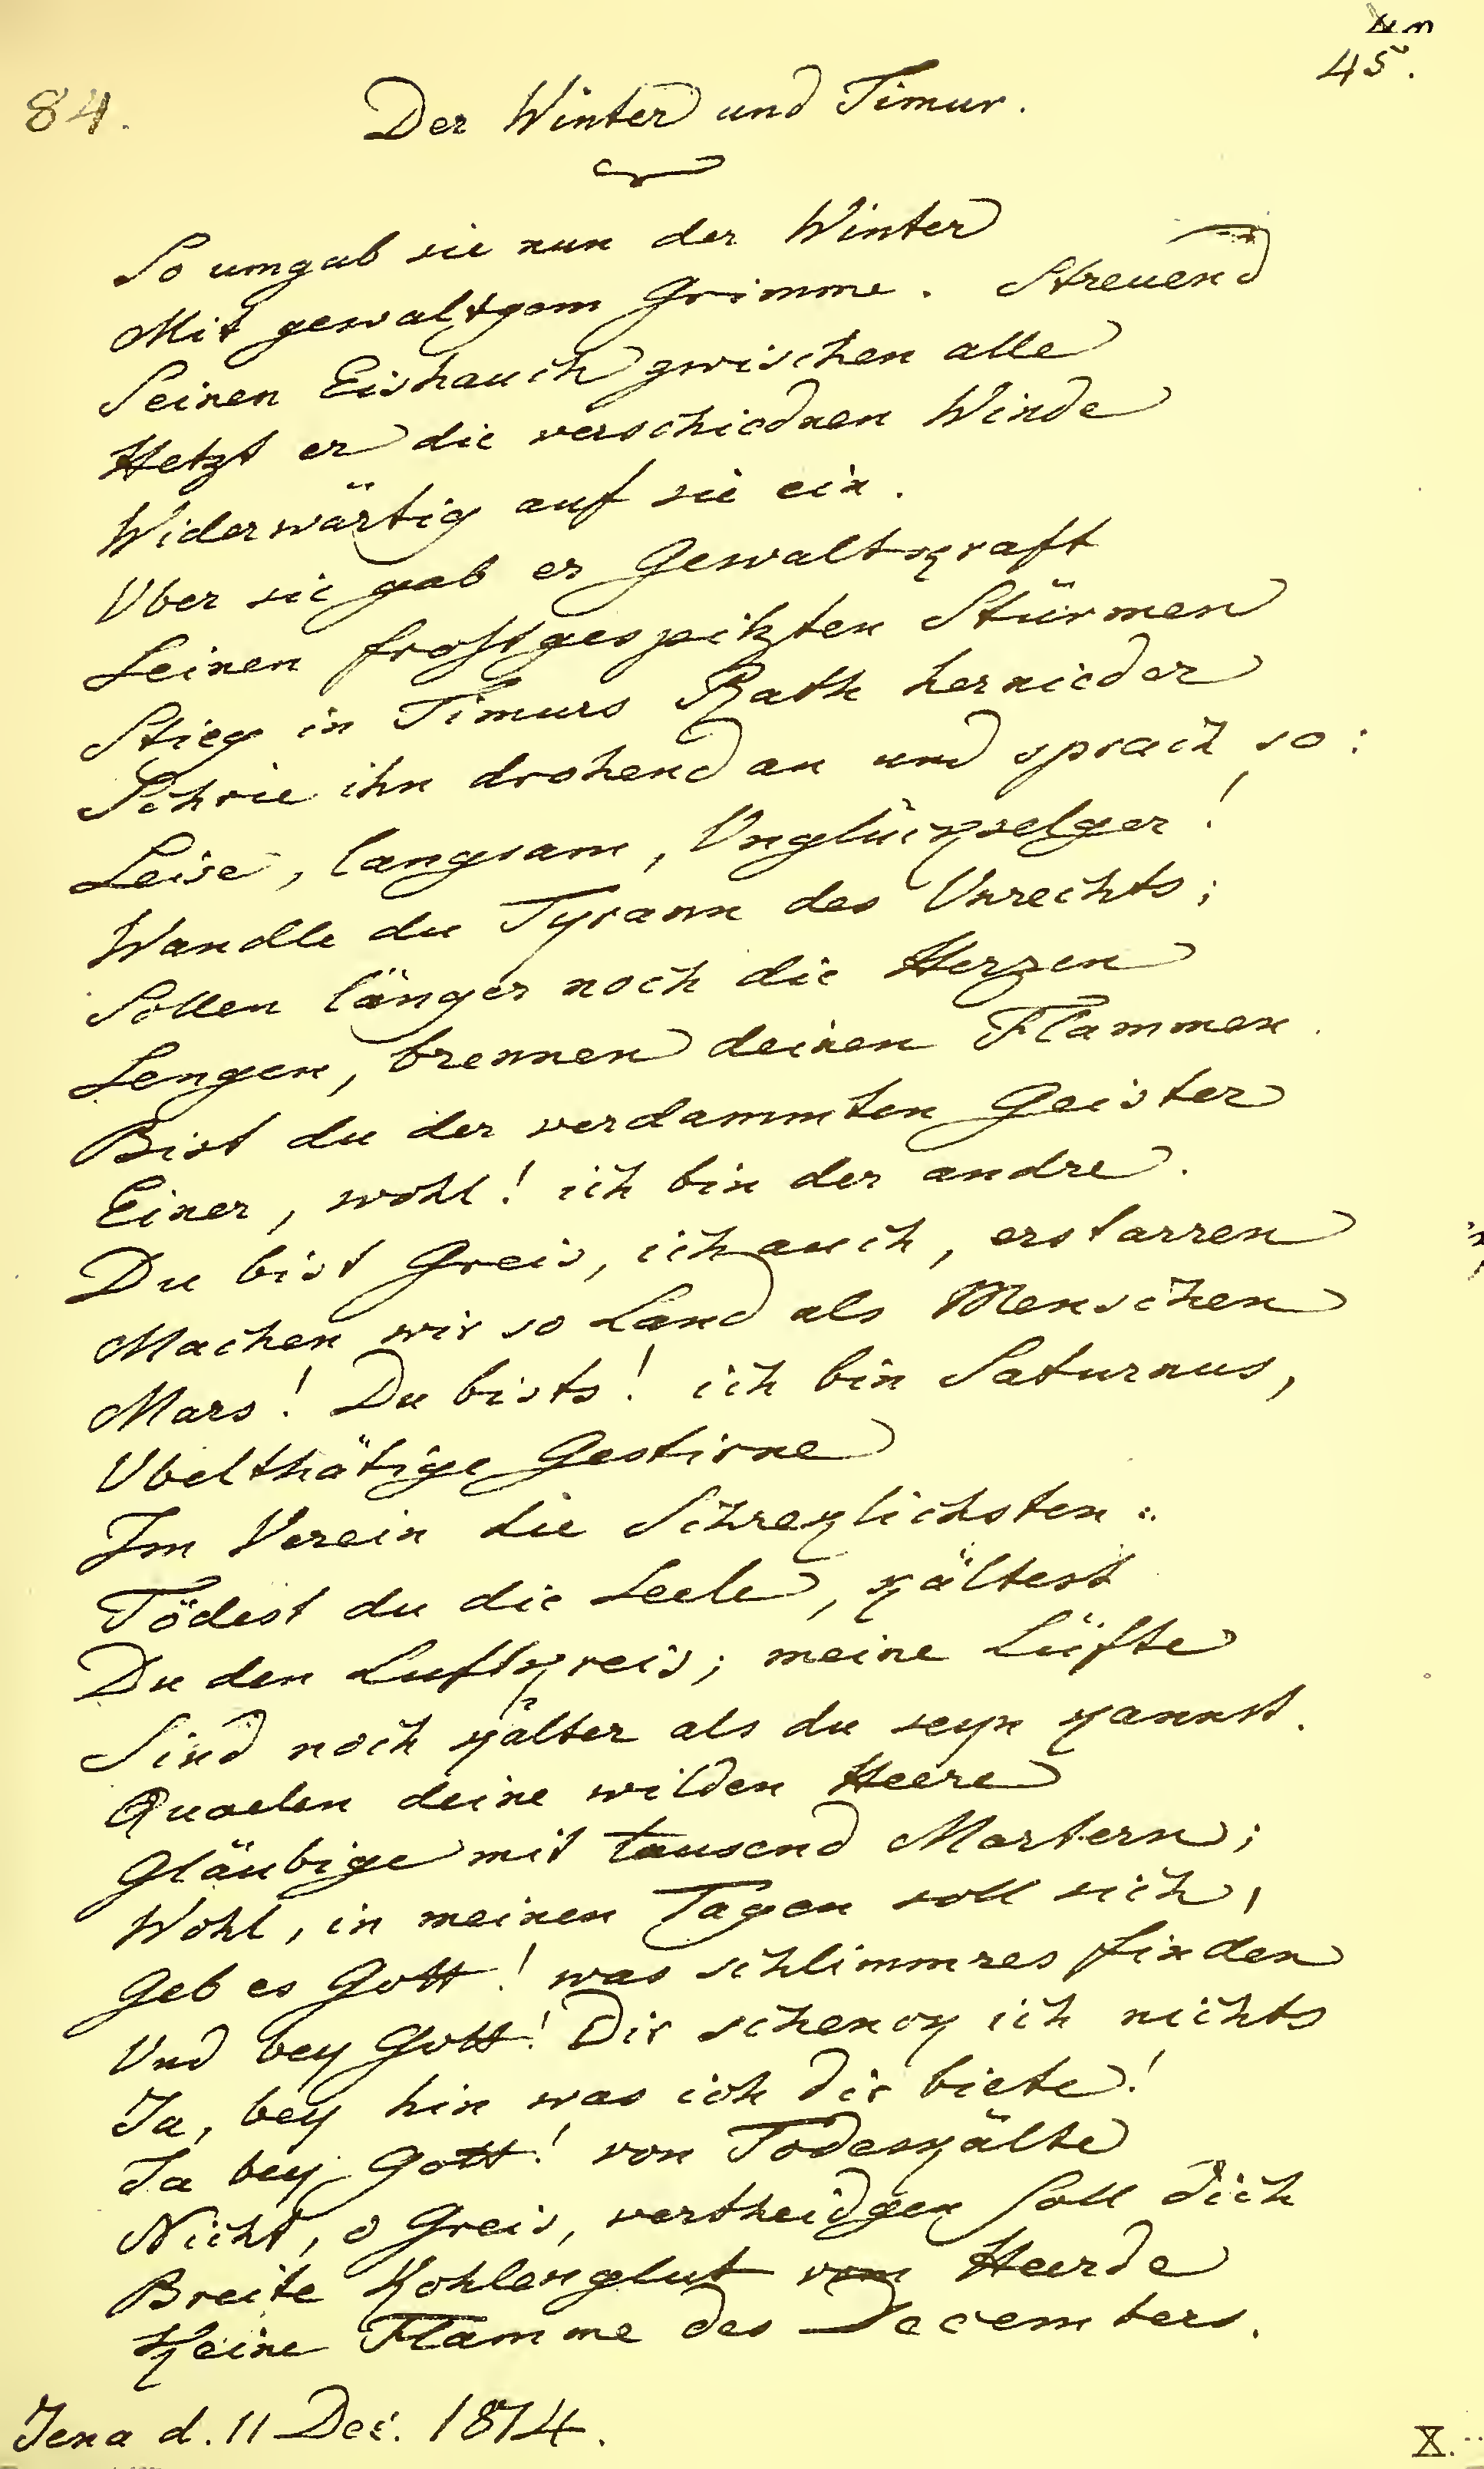 45.
84.
Der Winter und Timur.
So umgab sie nun der Winter
Mit gewaltgem Grimme. Streuend
Seinen Eishauch zwischen alle
Hetzt er die verschiednen Winde
Widerwärtig auf sie ein.
Uber sie gab er Gewaltkraft
Seinen frostgespitzten Stürmen
Stieg in Timurs Rath hernieder
Schrie ihn drohend an und sprach so:
Leise, langsam, Unglückselger!
Wandle du Tyrann des Unrechts;
Sollen länger noch die Herzen
Sengen, brennen deinen Flammen.
Bist du der verdammten Geister
Einer, wohl! ich bin der andre.
Du bist Greis, ich auch, erstarren
Machen wir so Land als Menschen
Mars! Du bists! ich bin Saturnus,
Ubelthätige Gestirne
Im Verein die Schreklichsten.
Tödest du die Seele, kältest
Du den Luftkreis; meine Lüfte
Sind noch kälter als du seyn kannst.
Quaelen deine wilden Heere
Gläubige mit tausend Martern;
Wohl, in meinen Tagen soll sich,
Geb es Gott! was schlimmres finden
Und bey Gott! Dir schenck ich nichts
Ja, bey hin was ich dir biete!
Ja bey Gott! von Todeskälte
Nicht, o Greis, vertheidgen soll dich
Breite Kohlenglut vom Heerde
Keine Flamme des Decembers.
Jena d. 11 Dec. 1814.
X.